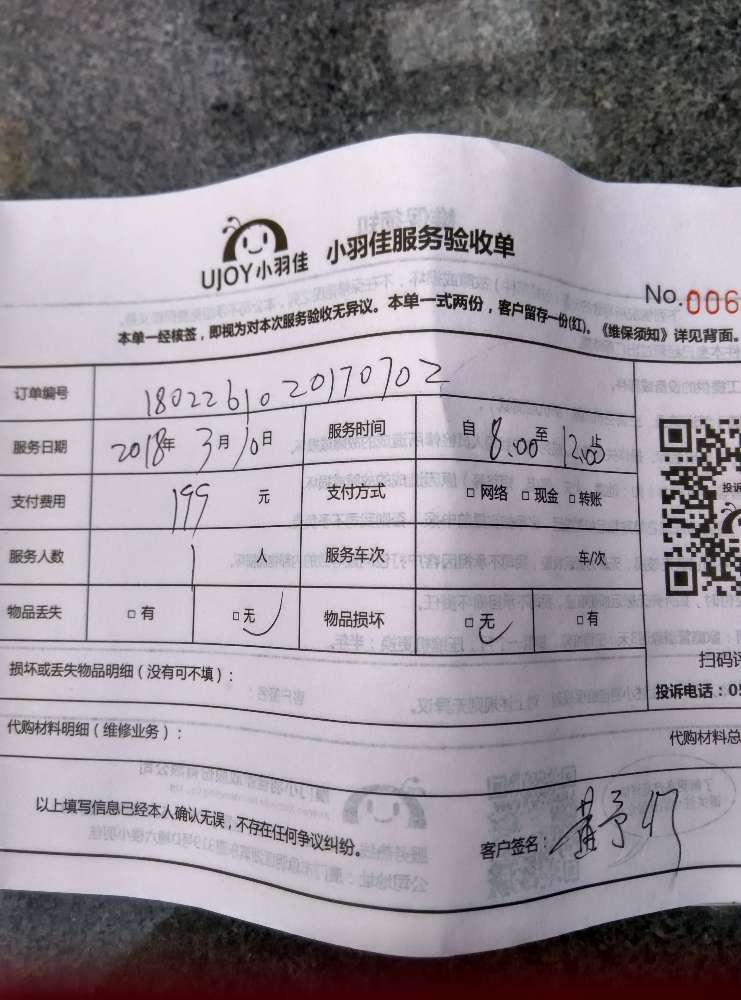 UJOY小羽佳 小羽佳服务验收单
No.006
本单一经核签，即视为对本次服务验收无异议。本单一式两份，客户留存一份(红)。《维保须知》详见背面。
订单编号 1802261020170702
服务日期 2018年3月10日 服务时间 自8:00至12:00止
支付费用 199元 支付方式 □网络 □现金 □转账
服务人数 1人 服务车次 车/次
物品丢失 □有 □无 物品损坏 □无 □有
损坏或丢失物品明细（没有可不填）：
代购材料明细（维修业务）：
代购材料总
扫码评
投诉电话：05
投诉
以上填写信息已经本人确认无误，不存在任何争议纠纷。
客户签名：黄予